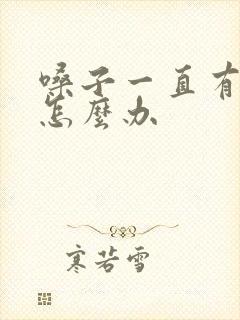 嗓子一直有
怎麼办
寒若雪